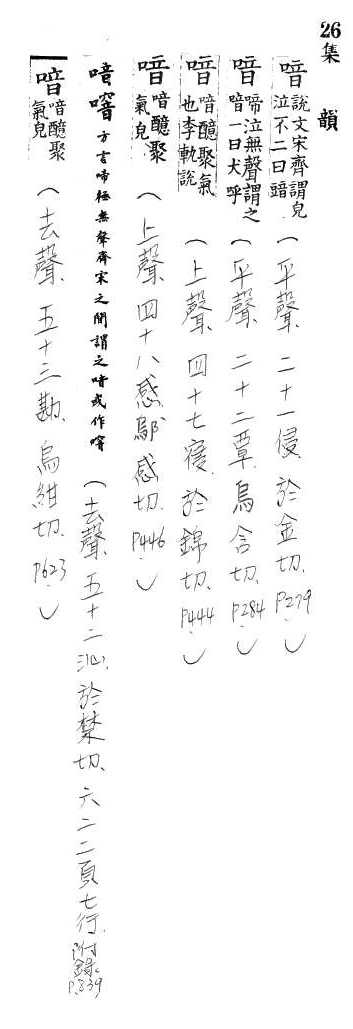 26 集韻
喑 說文宋齊謂皃泣不止曰喑 （平聲、二十一侵、於金切、P279.）
喑 啼泣無聲謂之喑一曰犬呼 （平聲、二十二覃、烏含切、P284.）
喑 喑醷聚氣也李軌說 （上聲、四十七寑、於錦切、P444.）
喑 喑醷聚氣皃 （上聲、四十八感、鄔感切、P446.）
喑噾 方言啼極無聲齊宋之閒謂之喑或作噾 （去聲、五十二沁、於禁切、六二二頁七行、附錄、P.839
喑 喑醷聚氣皃 （去聲、五十三勘、烏紺切、P623.）